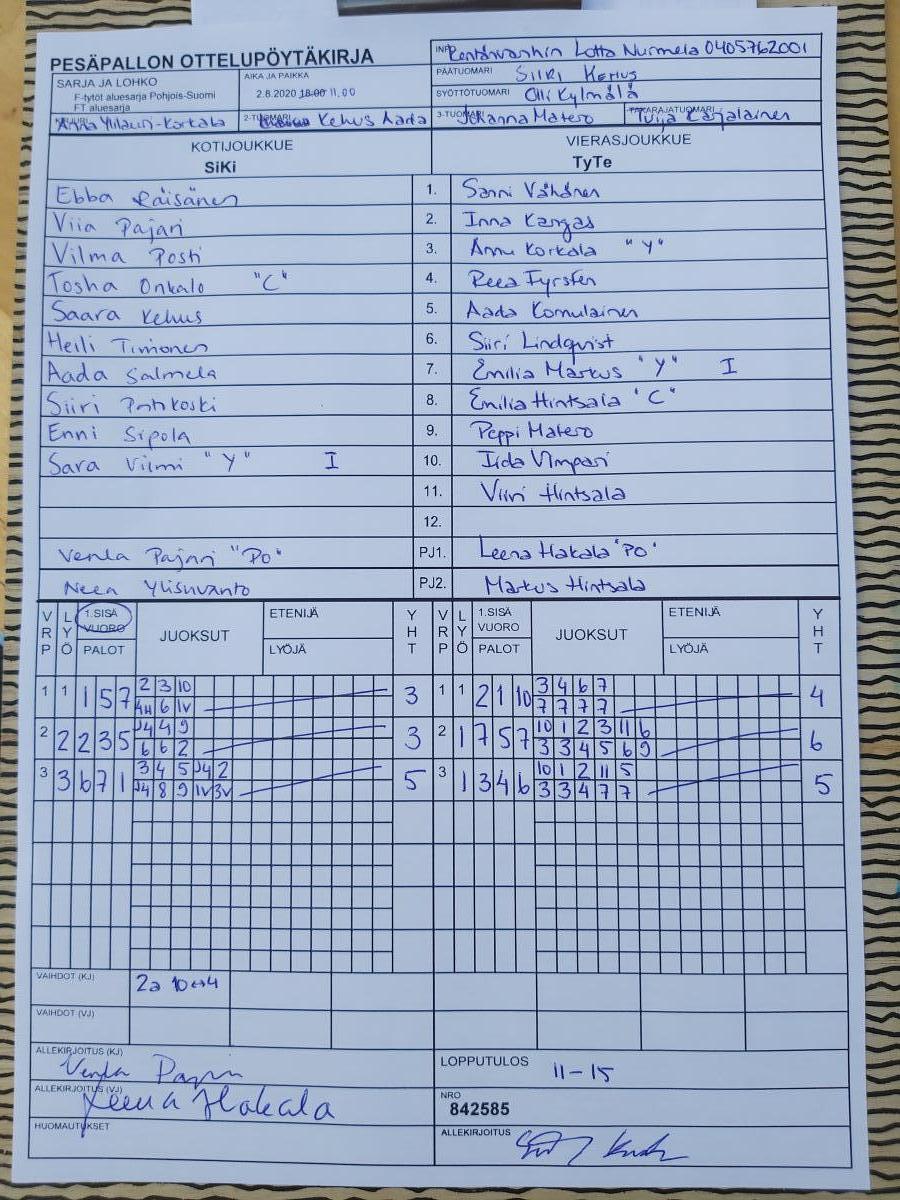 PESÄPALLON OTTELUPÖYTÄKIRJA
Lotta Nurmela 0405762001
SARJA JA LOHKO
F-tytöt aluesarja Pohjois-Suomi
FT aluesarja
AIKA JA PAIKKA
2.8.2020 18.00 11.00
PÄÄTUOMARI Siiri Kehus
SYÖTTÖTUOMARI Olli Kylmälä
Anna Ylilauri-Korkala
2-TUOMARI Kehus Aada
3-TUOMARI Johanna Matero
TAKARAJATUOMARI Tuija Karjalainen
KOTIJOUKKUE
SiKi
VIERASJOUKKUE
TyTe
Ebba Räisänen 1. Sanni Vähänen
Viia Pajari 2. Inna Kangas
Vilma Posti 3. Annu Korkala "Y"
Tosha Onkalo "C" 4. Reea Fyrsten
Saara Kehus 5. Aada Komulainen
Heili Timonen 6. Siiri Lindqvist
Aada Salmela 7. Emilia Markus "Y" I
Siiri 8. Emilia Hintsala "C"
Enni Sipola 9. Peppi Matero
Sara Viimi "Y" I 10. Iida Vimpari
11. Viivi Hintsala
12.
Venla Pajari "PO" PJ1. Leena Hakala "PO"
Neea Ylisuvanto PJ2. Markus Hintsala
VRP LYÖ 1.SISÄ VUORO PALOT JUOKSUT ETENIJÄ LYÖJÄ YHT VRP LYÖ 1.SISÄ VUORO PALOT JUOKSUT ETENIJÄ LYÖJÄ YHT
1 1 1 5 7 2 3 10 3 1 1 2 1 10 3 4 6 7 4
4H 6 1V 7 7 7 7
2 2 2 3 5 J4 4 9 3 2 1 7 5 7 10 1 2 3 11 6 6
6 6 2 3 3 4 5 6 9
3 3 6 7 1 3 4 5 J4 2 5 3 1 3 4 6 10 1 2 11 5 5
J4 8 9 1V 3V 3 3 4 7 7
VAIHDOT (KJ) 2a 10↔4
VAIHDOT (VJ)
ALLEKIRJOITUS (KJ)
Venla Pajari
LOPPUTULOS 11-15
ALLEKIRJOITUS (VJ)
Leena Hakala
NRO
842585
HUOMAUTUKSET
ALLEKIRJOITUS